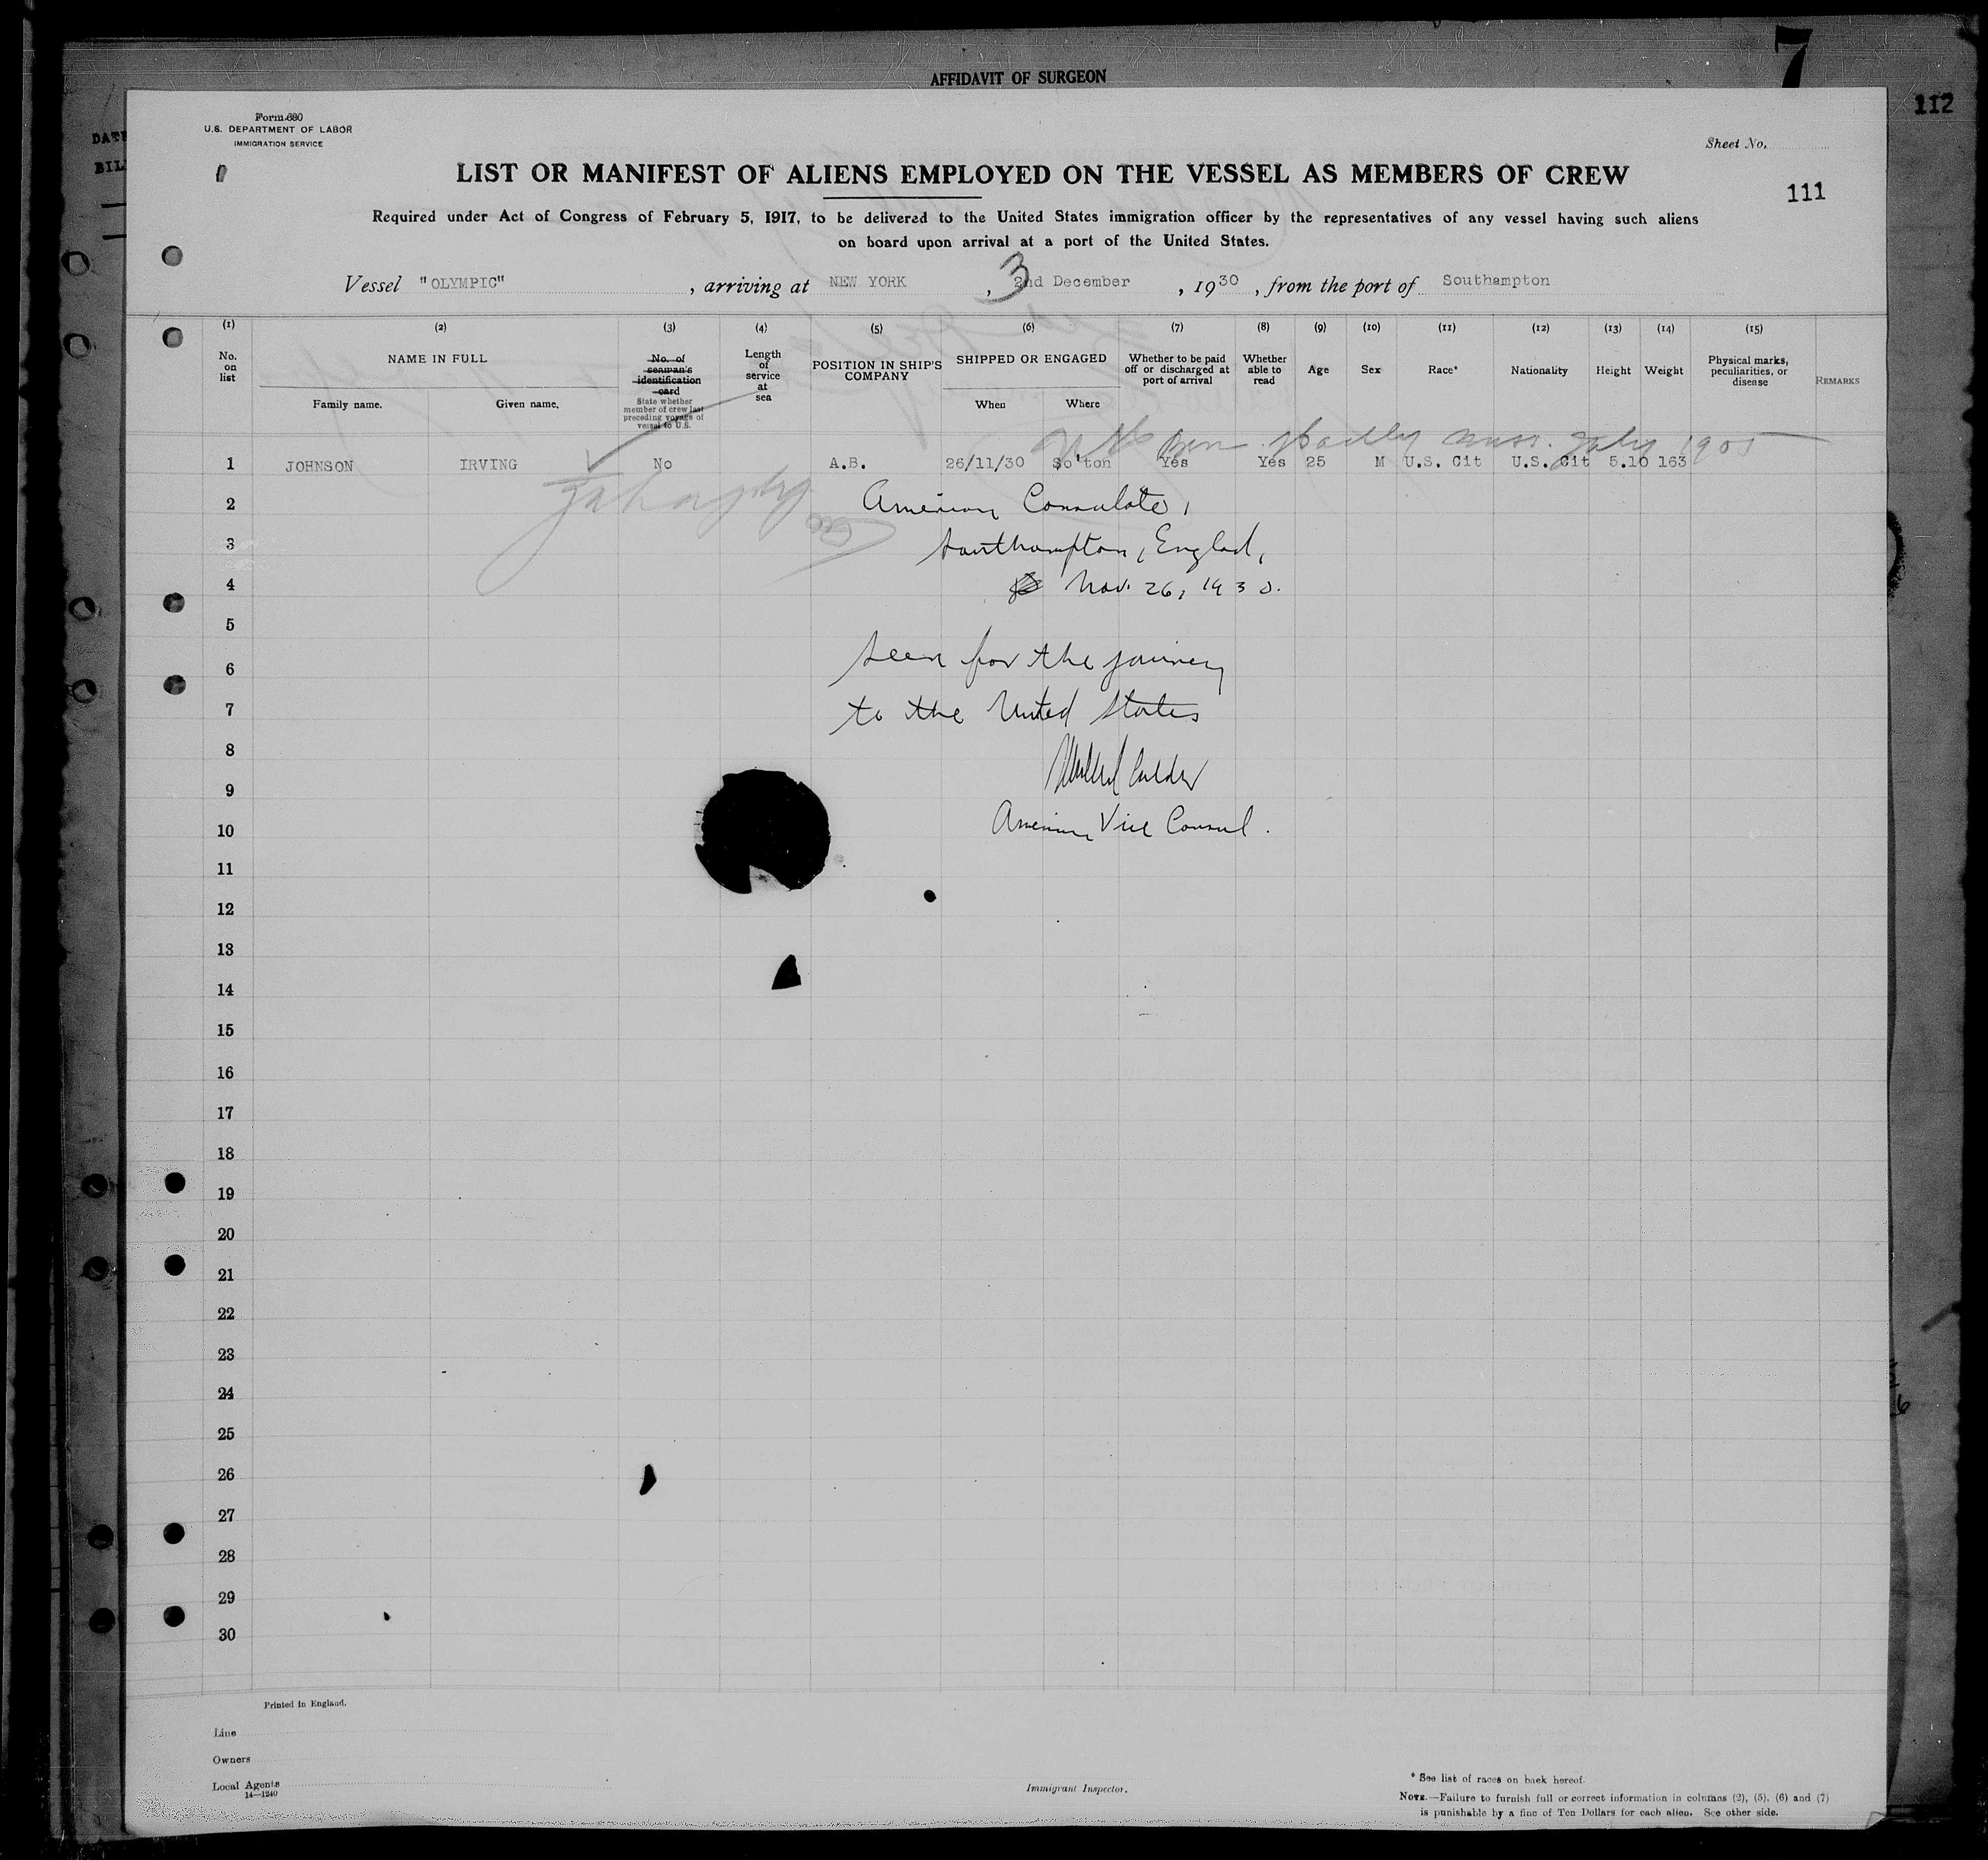 7
AFFIDAVIT OF SURGEON
112
DATE
BIL
Form 680
U.S. DEPARTMENT OF LABOR
IMMIGRATION SERVICE
Sheet No.
LIST OR MANIFEST OF ALIENS EMPLOYED ON THE VESSEL AS MEMBERS OF CREW
111
Required under Act of Congress of February 5, 1917, to be delivered to the United States immigration officer by the representatives of any vessel having such aliens
on board upon arrival at a port of the United States.
Vessel "OLYMPIC" , arriving at NEW YORK , 3 2nd December , 1930 , from the port of Southampton
(1) (2) (3) (4) (5) (6) (7) (8) (9) (10) (11) (12) (13) (14) (15)
No. on list
NAME IN FULL
Family name. Given name.
No. of seaman's identification card
State whether member of crew last preceding voyage of vessel to U.S.
Length of service at sea
POSITION IN SHIP'S COMPANY
SHIPPED OR ENGAGED
When Where
Whether to be paid off or discharged at port of arrival
Whether able to read
Age
Sex
Race*
Nationality
Height
Weight
Physical marks, peculiarities, or disease
REMARKS
Born Hadley Mass. July 1905
1 JOHNSON IRVING No A.B. 26/11/30 So'ton Yes Yes 25 M U.S. Cit U.S. Cit 5.10 163
2 American Consulate,
3 Southampton, England,
4 Nov. 26, 1930.
5
6 Seen for the journey
7 to the United States
8
9
10 American Vice Consul.
11
12
13
14
15
16
17
18
19
20
21
22
23
24
25
26
27
28
29
30
Printed in England.
Line
Owners
Local Agents
14—1240
Immigrant Inspector.
* See list of races on back hereof.
NOTE.—Failure to furnish full or correct information in columns (2), (5), (6) and (7)
is punishable by a fine of Ten Dollars for each alien. See other side.